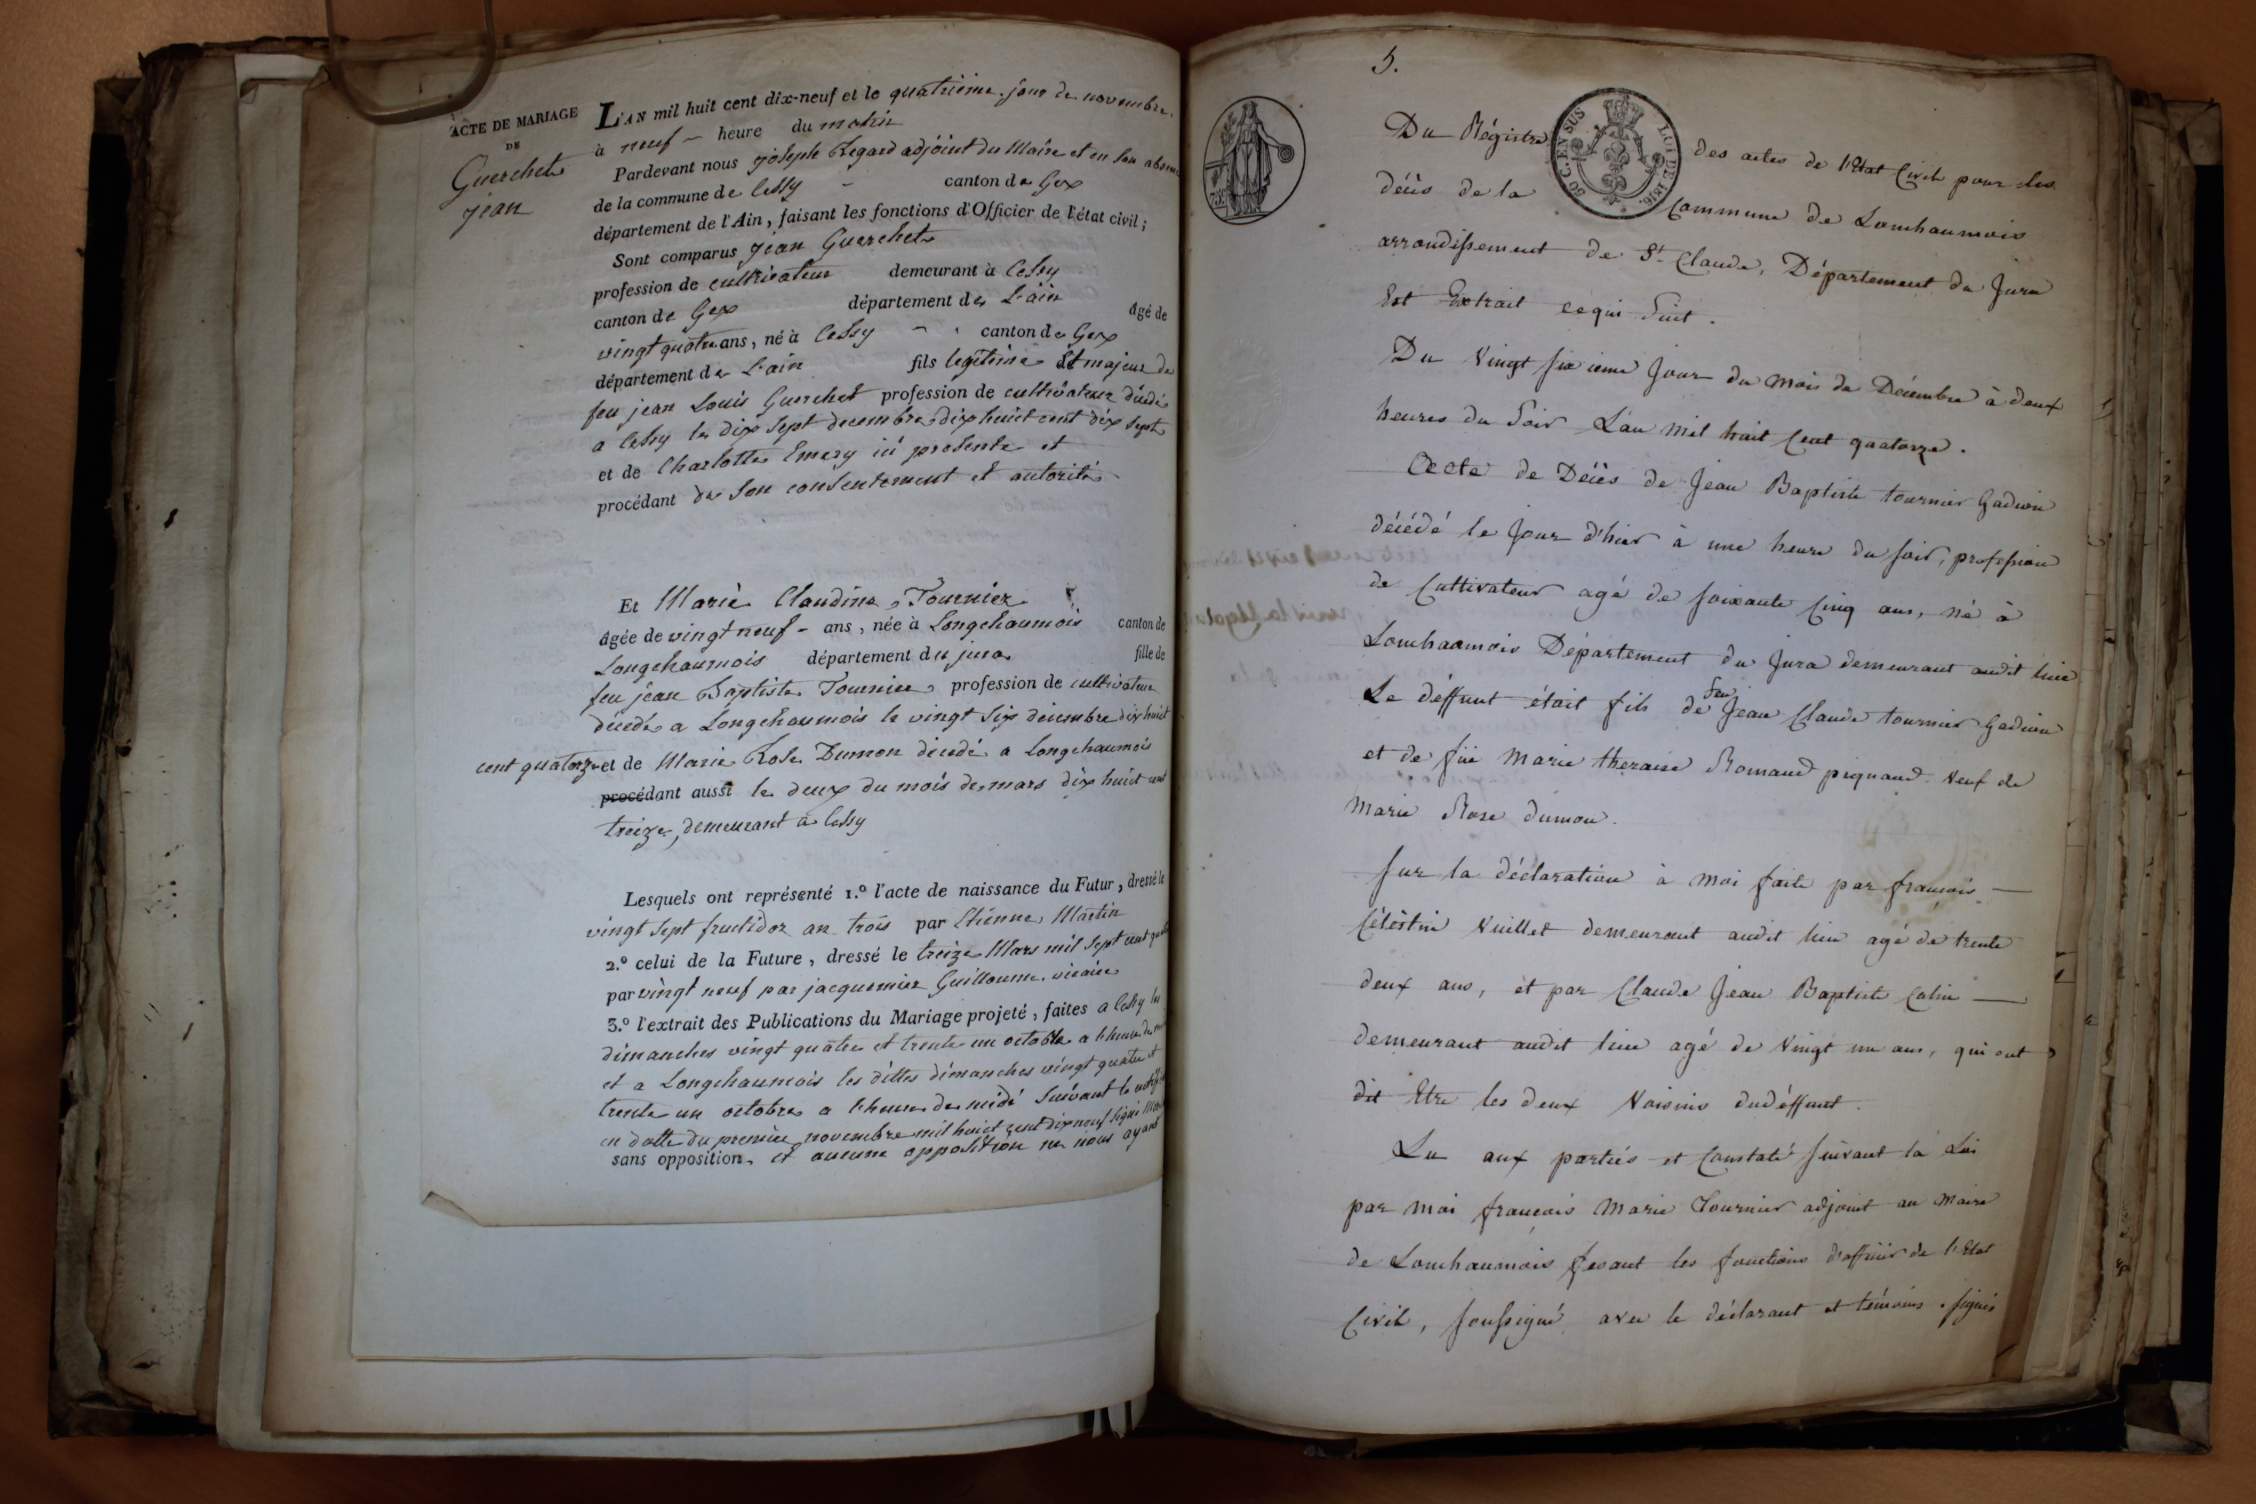 ACTE DE MARIAGE
DE
Guerchet
jean
L'AN mil huit cent dix-neuf et le quatrième jour de novembre
à neuf - heure du matin
Pardevant nous joseph Regard adjoint du Maire et en son absence
de la commune de Cessy - canton de Gex
département de l'Ain, faisant les fonctions d'Officier de l'état civil ;
Sont comparus jean Guerchet
profession de cultivateur demeurant à Cessy
canton de Gex département de L'ain âgé de
vingt quatre ans, né à Cessy - - canton de Gex
département de L'ain fils legitime et majeur de
feu jean Louis Guerchet profession de cultivateur décédé
a Cessy le dix sept decembre dix huit cent dix sept
et de Charlotte Emery ici presente et
procédant de son consentement et autorité
Et Marie Claudine Tournier
âgée de vingt neuf - ans, née à Longchaumois canton de
Longchaumois département du jura fille de
feu jean Baptiste Tournier profession de cultivateur
décédé a Longchaumois le vingt six decembre dix huit
cent quatorze et de Marie Rose Dumon décédé a Longchaumois
procédant aussi le deux du mois de mars dix huit cent
treize, demeurant à Cessy
Lesquels ont représenté 1.º l'acte de naissance du Futur, dressé le
vingt sept fructidor an trois par Etienne Martin
2.º celui de la Future, dressé le treize Mars mil sept cent quatre
par vingt neuf par jacquemier Guillaume vicaire
3.º l'extrait des Publications du Mariage projeté, faites a Cessy les
dimanches vingt quatre et trente un octobre a l'heure de midi
et a Longchaumois les dittes dimanches vingt quatre et
trente un octobre a l'heure de midi suivant le certificat
en datte du premier novembre mil huit cent dix neuf signé
sans opposition et aucune opposition ne nous ayant
5.
50 C. EN SUS
LOI DE 1816.
75
Du Régistre des actes de l'Etat Civil pour les
décès de la Commune de Lonchaumois
arrondissement de St Claude, Département du Jura
Est Extrait ce qui suit.
Du Vingt sixieme Jour du mois de Décembre à deux
heures du soir L'an mil huit Cent quatorze.
Acte de Décès de Jean Baptiste tournier Gadion
décédé le Jour d'hier à une heure du soir, profession
de Cultivateur agé de soixante Cinq ans, né à
Lonchaumois Département du Jura demeurant audit lieu
Le déffunt était fils de feu Jean Claude tournier Gadion
et de füe Marie théraise Romand piquand. Veuf de
Marie Rose dumon.
sur la déclaration à moi faite par françois —
Célèstin Vuillet demeurant audit lieu agé de trente
deux ans, et par Claude Jean Baptiste Colin —
demeurant audit lieu agé de Vingt un ans, qui ont
dit Etre les deux Voisins du déffunt.
Lu aux partiés et Constaté suivant la Loi
par moi françois Marie Tournier adjoint au Maire
de Lonchaumois fesant les fonctions d'officier de l'Etat
Civil, soussigné avec le déclarant et témoins. signés